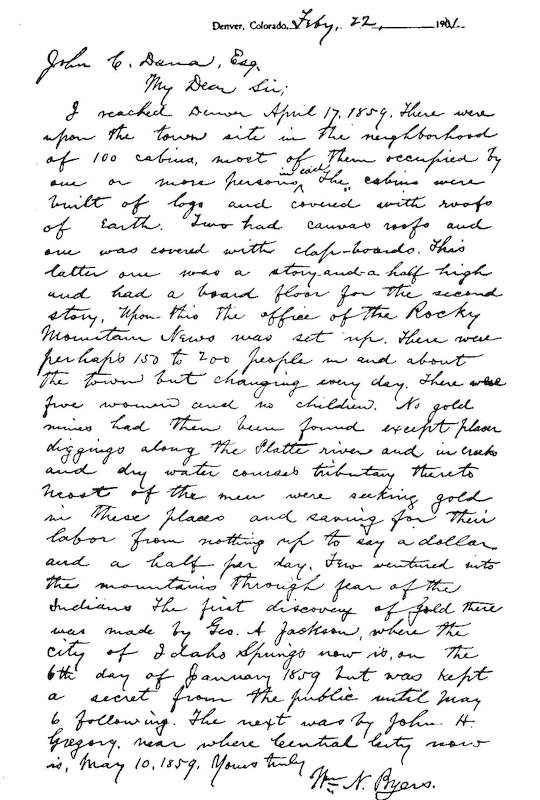 Denver, Colorado, Feby, 22, 1901.
John C. Dana, Esq.
My Dear Sir;
I reached Denver April 17, 1859. There were
upon the town site in the neighborhood
of 100 cabins, most of them occupied by
one or more persons in each. The cabins were
built of logs and covered with roofs
of Earth. Two had canvas roofs and
one was covered with clap-boards. This
latter one was a story-and-a-half high
and had a board floor for the second
story. Upon this the office of the Rocky
Mountain News was set up. There were
perhaps 150 to 200 people in and about
the town but changing every day. There were
five women and no children. No gold
mines had then been found except placer
diggings along the Platte river and in creeks
and dry water courses tributary thereto
Most of the men were seeking gold
in these places and saving for their
labor from nothing up to say a dollar
and a half per day. Few ventured into
the mountains through fear of the
Indians The first discovery of gold there
was made by Geo. A Jackson, where the
city of Idaho Springs now is, on the
6th day of January 1859 but was kept
a secret from the public until May
6 following. The next was by John H.
Gregory, near where Central City now
is, May 10, 1859. Yours truly
Wm N. Byers.